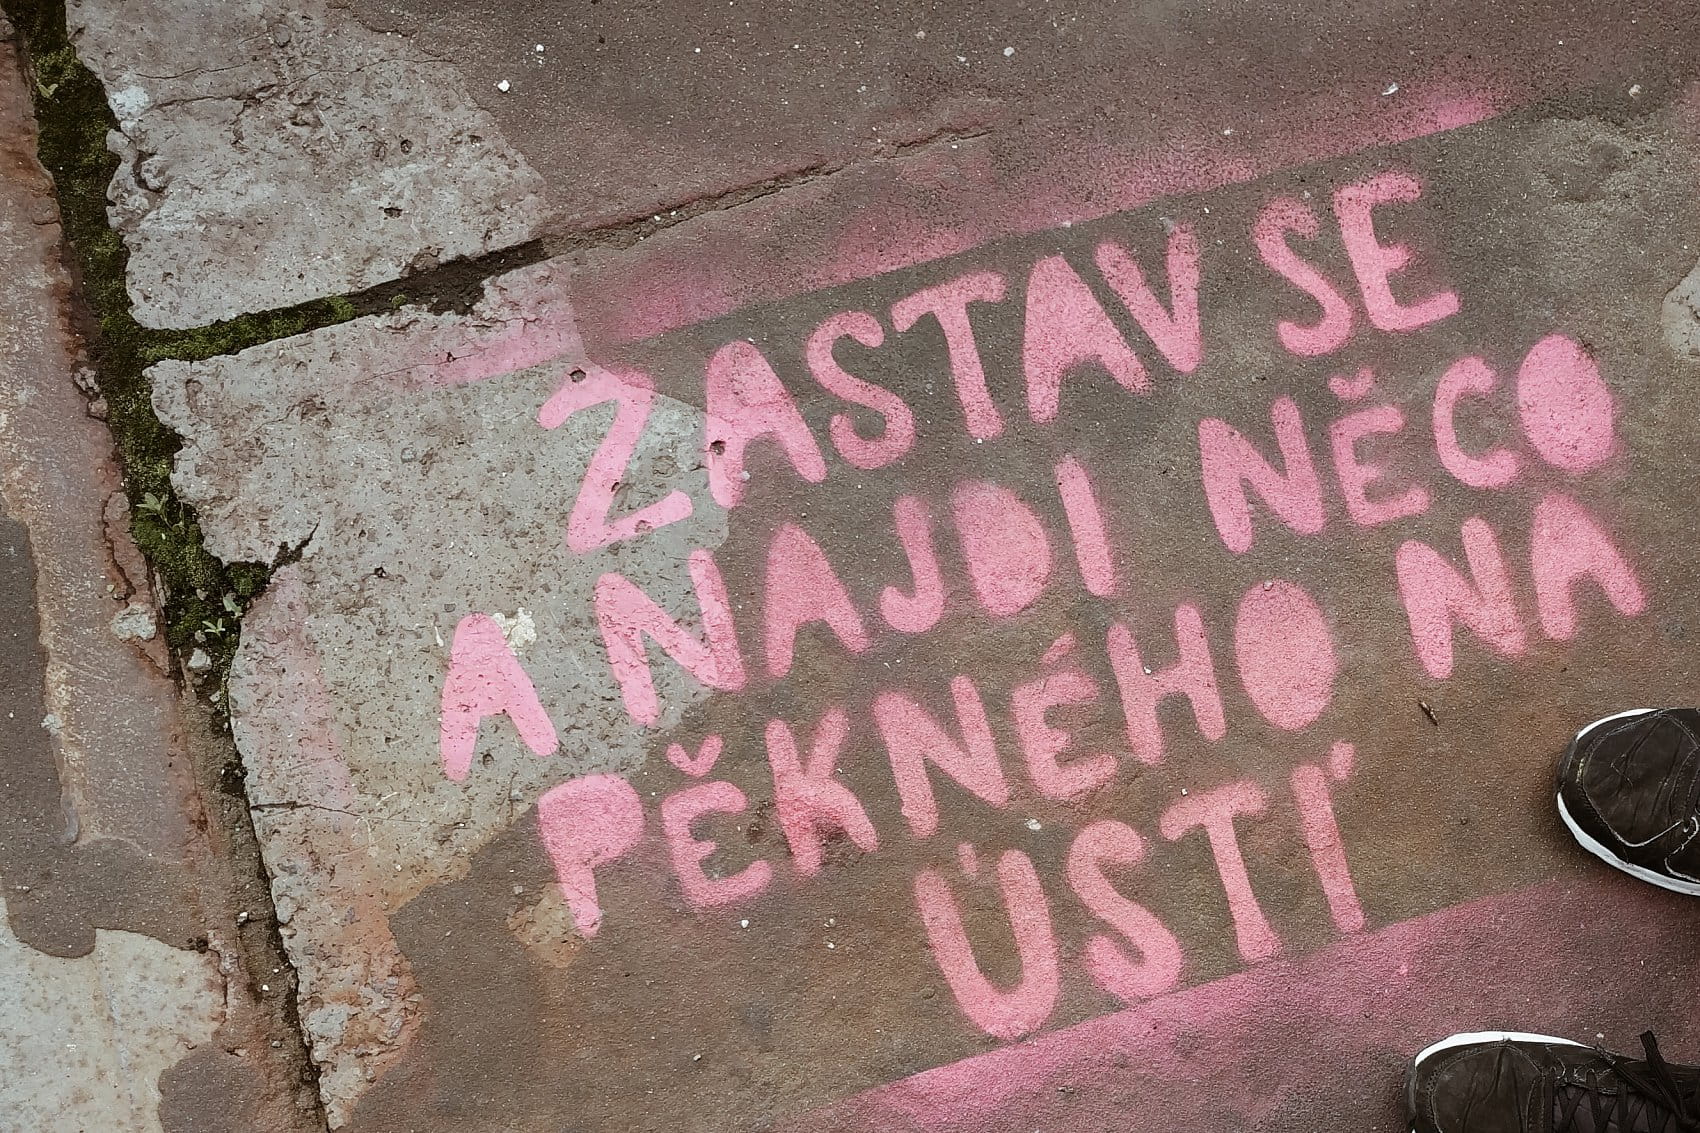 ZASTAV SE
A NAJDI NĚCO
PĚKNÉHO NA
ÚSTÍ